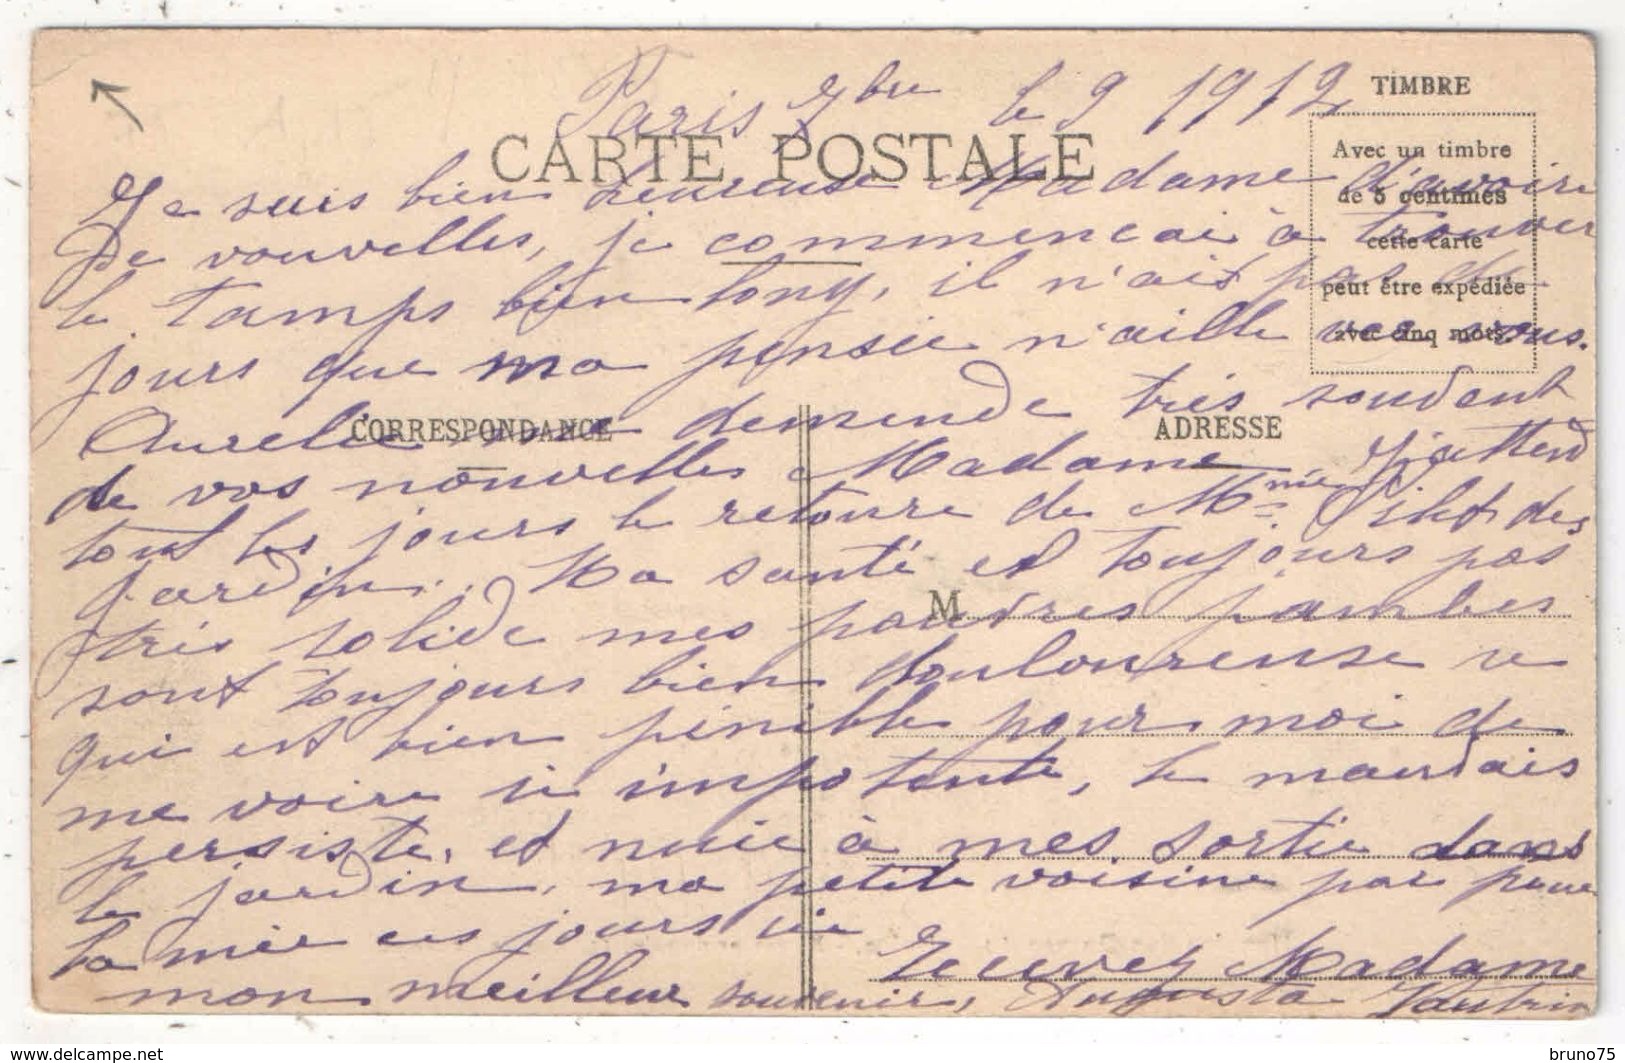 Paris 7bre le 9 1912
TIMBRE
CARTE POSTALE
Avec un timbre
de 5 centimes
cette carte
peut être expédiée
avec cinq mots.
Je suis bien heureuse Madame d'avoire
De vouvelles, je commencai à trouver
le tamps bien long, il n'ait pas de
jours que ma pensée n'aille vers vous.
CORRESPONDANCE
ADRESSE
Aurelie me demende très soudent
de vos nouvelles Madame, J'attend
tout les jours le retoure de Mme des
jardin. Ma santé et toujours pas
M
très solide mes pauvres jambes
sont toujours bien douloureuse ce
qui est bien pénible pour moi de
me voire si impotente, le maudais
persiste, et nuie à mes sortie dans
le jardin, ma petite voisine par
la mée ces jours ici
Recevez Madame
mon meilleur souvenir, Augusta Vautrin
delcampe.net
bruno75